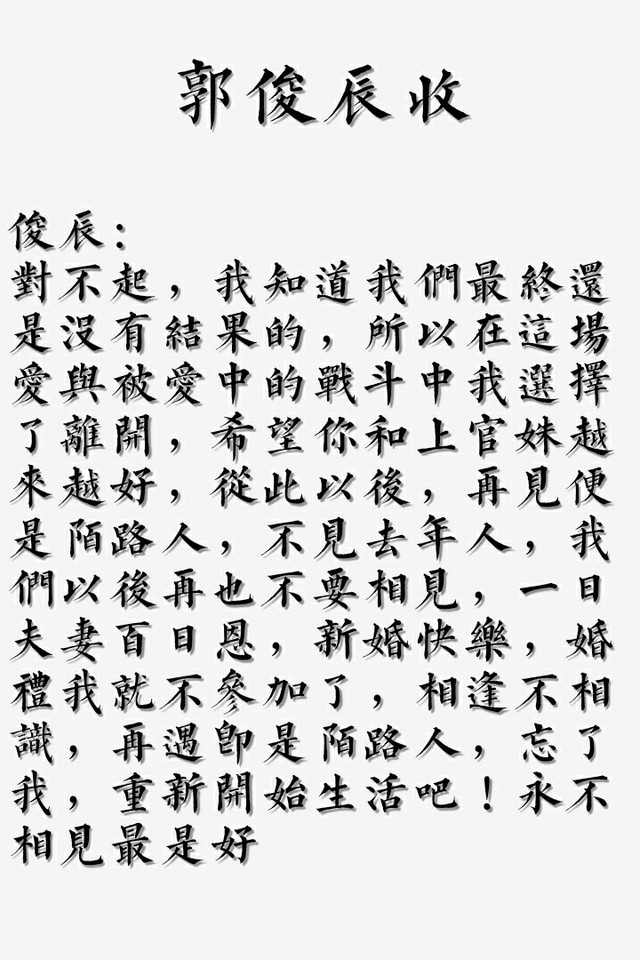 郭俊辰收
俊辰：
對不起，我知道我們最終還
是沒有結果的，所以在這場
愛與被愛中的戰斗中我選擇
了離開，希望你和上官姝越
來越好，從此以後，再見便
是陌路人，不見去年人，我
們以後再也不要相見，一日
夫妻百日恩，新婚快樂，婚
禮我就不參加了，相逢不相
識，再遇即是陌路人，忘了
我，重新開始生活吧！永不
相見最是好